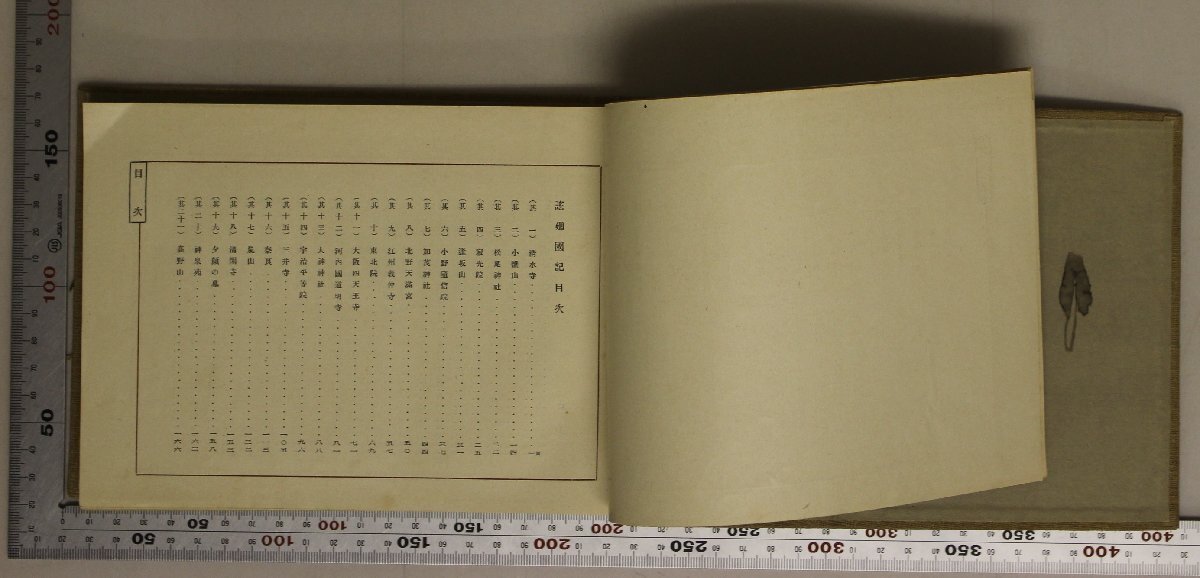 謠廻國記目次
(其一) 淸水寺 一
(其二) 小鹽山 一四
(其三) 松尾神社 二一
(其四) 寂光院 二五
(其五) 逢坂山 三一
(其六) 小野隨心院 三七
(其七) 加茂神社 四四
(其八) 北野天滿宮 五〇
(其九) 江州義仲寺 五七
(其十) 東北院 六九
(其十一) 大阪四天王寺 七一
(其十二) 河內國道明寺 八一
(其十三) 大神神社 八八
(其十四) 宇治平等院 九六
(其十五) 三井寺 一〇五
(其十六) 奈良 一一五
(其十七) 嵐山
(其十八) 淸閑寺
(其十九) 夕顏の墓 一五八
(其二十) 神泉苑 一六二
(其二十一) 雀野山 一六六
目次